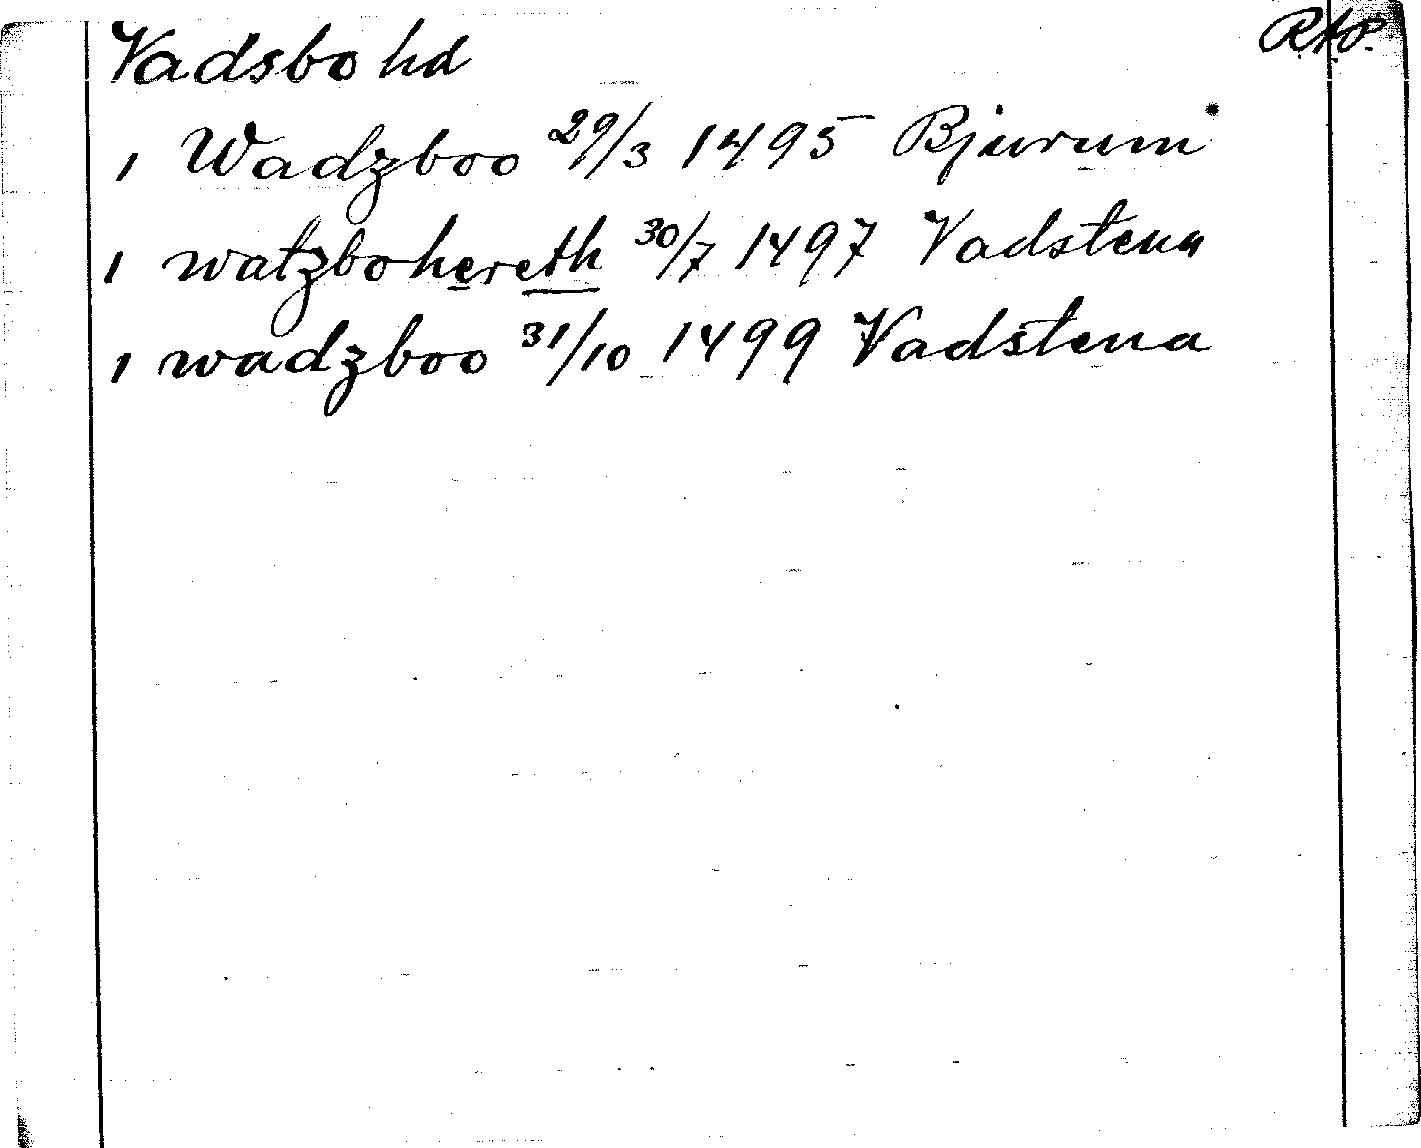 Vadsbo hd RAp.
1 Wadzboo 29/3 1495 Bjurum
1 watzbohereth 30/7 1497 Vadstena
1 wadzboo 31/10 1499 Vadstena